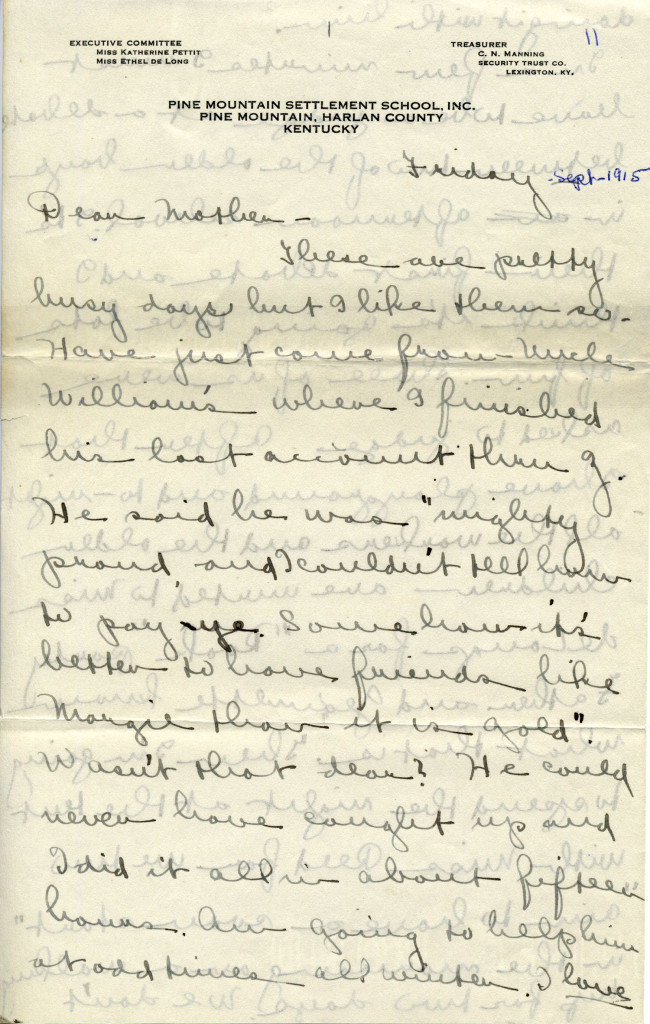 11
EXECUTIVE COMMITTEE
MISS KATHERINE PETTIT
MISS ETHEL DE LONG
TREASURER
C. N. MANNING
SECURITY TRUST CO.
LEXINGTON, KY.
PINE MOUNTAIN SETTLEMENT SCHOOL, INC.
PINE MOUNTAIN, HARLAN COUNTY
KENTUCKY
Friday Sept-1915
Dear Mother-
These are pretty
busy days but I like them so.
Have just come from Uncle
William's where I finished
his last account thru Z.
He said he was "mighty
proud, and I couldn't tell how
to pay ye. Somehow it's
better to have friends like
Margie than it is gold".
Wasn't that dear? He could
never have caught up and
I did it all in about fifteen
hours. Am going to help him
at odd times all winter. I love